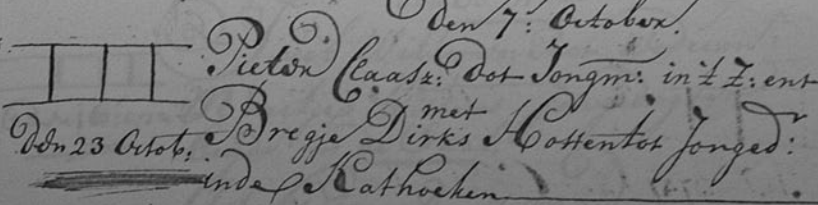 Den 7: October.
Pieter Claasz: Dot Jongm: in 't Z: ent
met
Den 23 Octob: Bregje Dirks Hottentot Jonged:
inde Kathoeken